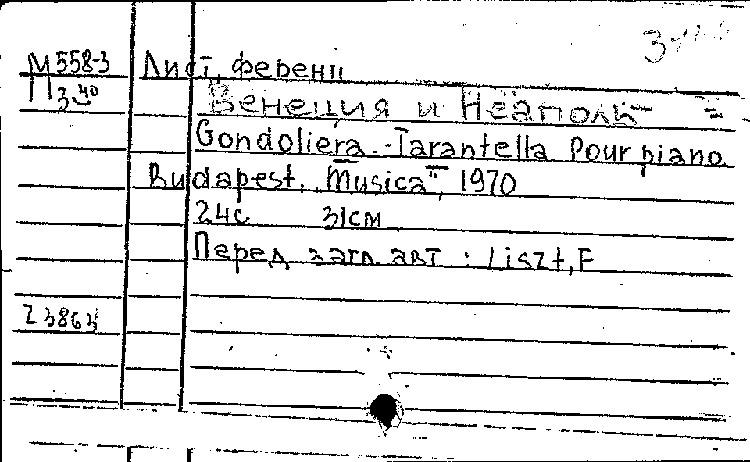 М558-3 Лист, ференц
П 3 40
Венеция и Неаполь =
Gondoliera.-Tarantella Pour piano
Budapest, "Musica", 1970
24с 31см
Перед загл авт : Liszt, F
23863